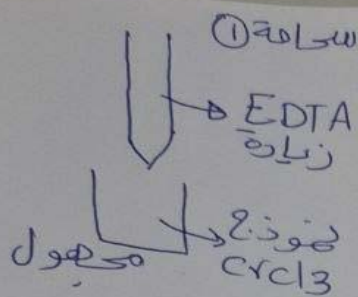 سحاحة ①
EDTA
زيادة
نموذج
مجهول
CrCl3